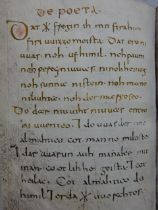 DE POETA
Dat * fregin ih mit firahim
firi uuizzo meista. Dat ero ni
uuas. noh ufhimil. noh paum
noh pereg niuuas. ninohheinig
noh sunna nistein. noh mano
niliuhta. noh der mareoseo.
Do dar niuuiht niuuas enteo
ni uuenteo. 7 do uuas der eino
almahtico cot manno miltisto
7 dar uuarun auh manake mit
inan cootlihhe geista. 7 cot
heilac. Cot almahtico du
himil 7 erda * uuorahtos